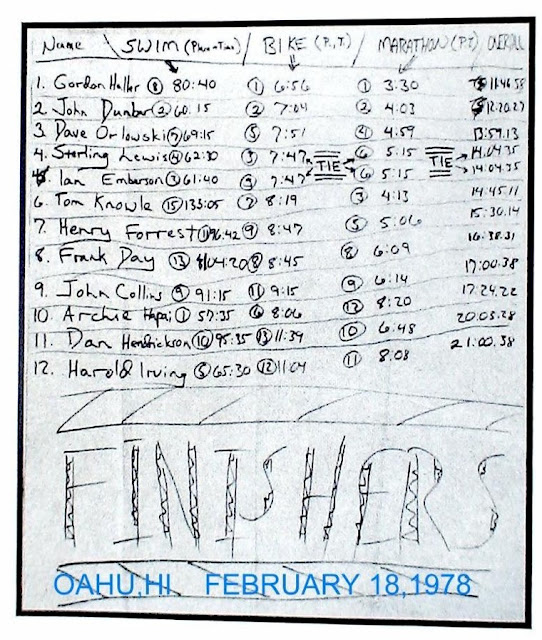 Name SWIM (Place-Time) BIKE (P,T) MARATHON (P,T) OVERALL
1. Gordon Haller 8 80:40 1 6:56 1 3:30 11:46:58
2. John Dunbar 2 60.15 2 7:04 2 4:03 12:20:27
3. Dave Orlowski 7 69:15 5 7:51 4 4:59 13:59.13
4. Sterling Lewis 4 62:30 3 7:47 TIE 6 5:15 TIE 14:04.35
Ian Emberson 3 61:40 3 7:47 6 5:15 14:04:35
6. Tom Knowle 15 133:05 7 8:19 3 4:13 14:45.11
7. Henry Forrest 96:42 9 8:47 5 5:06 15:30.14
8. Frank Day 13 04:20 8 8:45 8 6:09 16:38.31
9. John Collins 9 91:15 11 9:15 9 6:14 17:00.38
10. Archie Hapai 1 57:35 6 8:06 12 8:20 17:24.22
11. Dan Hendrickson 10 95:35 13 11:39 10 6:48 20:03.28
12. Harold Irving 5 65:30 12 11:04 11 8:08 21:00.38
FINISHERS
OAHU,HI FEBRUARY 18,1978